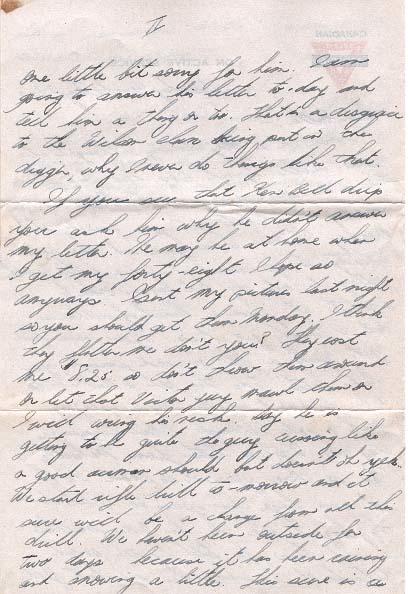 II
one little bit sorry for him. I am
going to answer his letter to-day and
tell him a thing or to. that is a disgrace
to the Wilson clan being put in the
digger, why I never do things like that.
If you see that Ken Bell drip
you ask him why he didn't answer
my letter. He may be at home when
I get my forty-eight I hope so
anyways. I sent my pictures last night
so you should get them Monday. I think
they flatter me don't you? They cost
me "5.25" so don't throw them around
or let that Victor guy mawl them or
I will wring his neck. Say he is
getting to be quite the guy cussing like
a good airman should but doesn't he
We start rifle drill to-morrow and it
sure will be a change from all this
drill. We haven't been outside for
two days because it has been raining
and snowing a little. This sure is a
CANADIAN
ON ACTIVE SERVICE